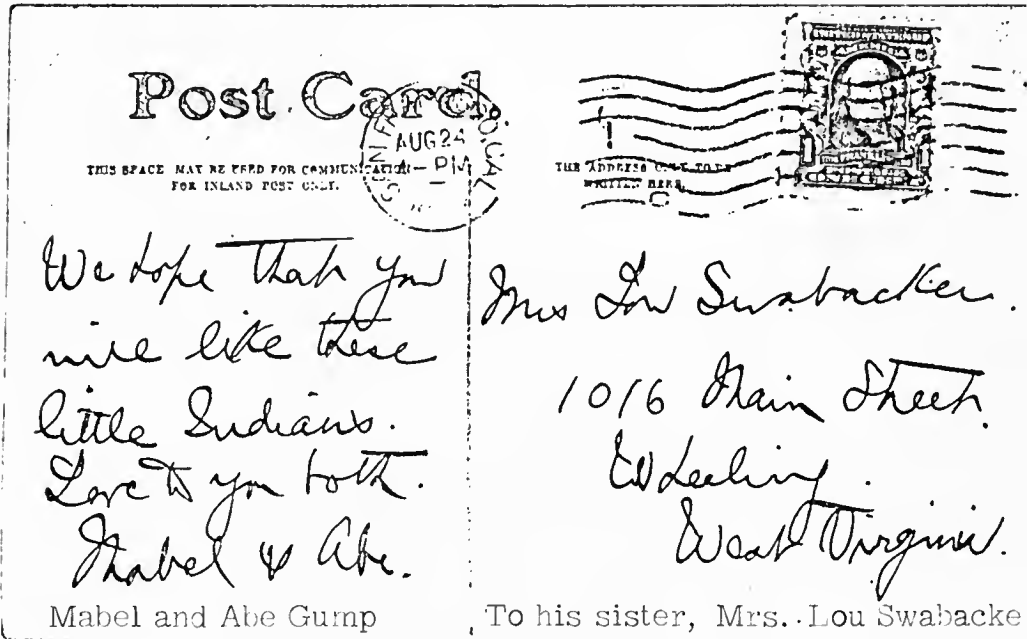 Post Card.
THIS SPACE MAY BE USED FOR COMMUNICATION
FOR INLAND POST ONLY.
AUG 24
-PM
CAL
THE ADDRESS ONLY TO BE
WRITTEN HERE.
We hope that you
will like these
little Indians.
Love to you both.
Mabel & Abe.
Mrs Lou Swabacker.
1016 Main Street.
Wheeling.
West Virginia.
Mabel and Abe Gump
To his sister, Mrs. Lou Swabacke